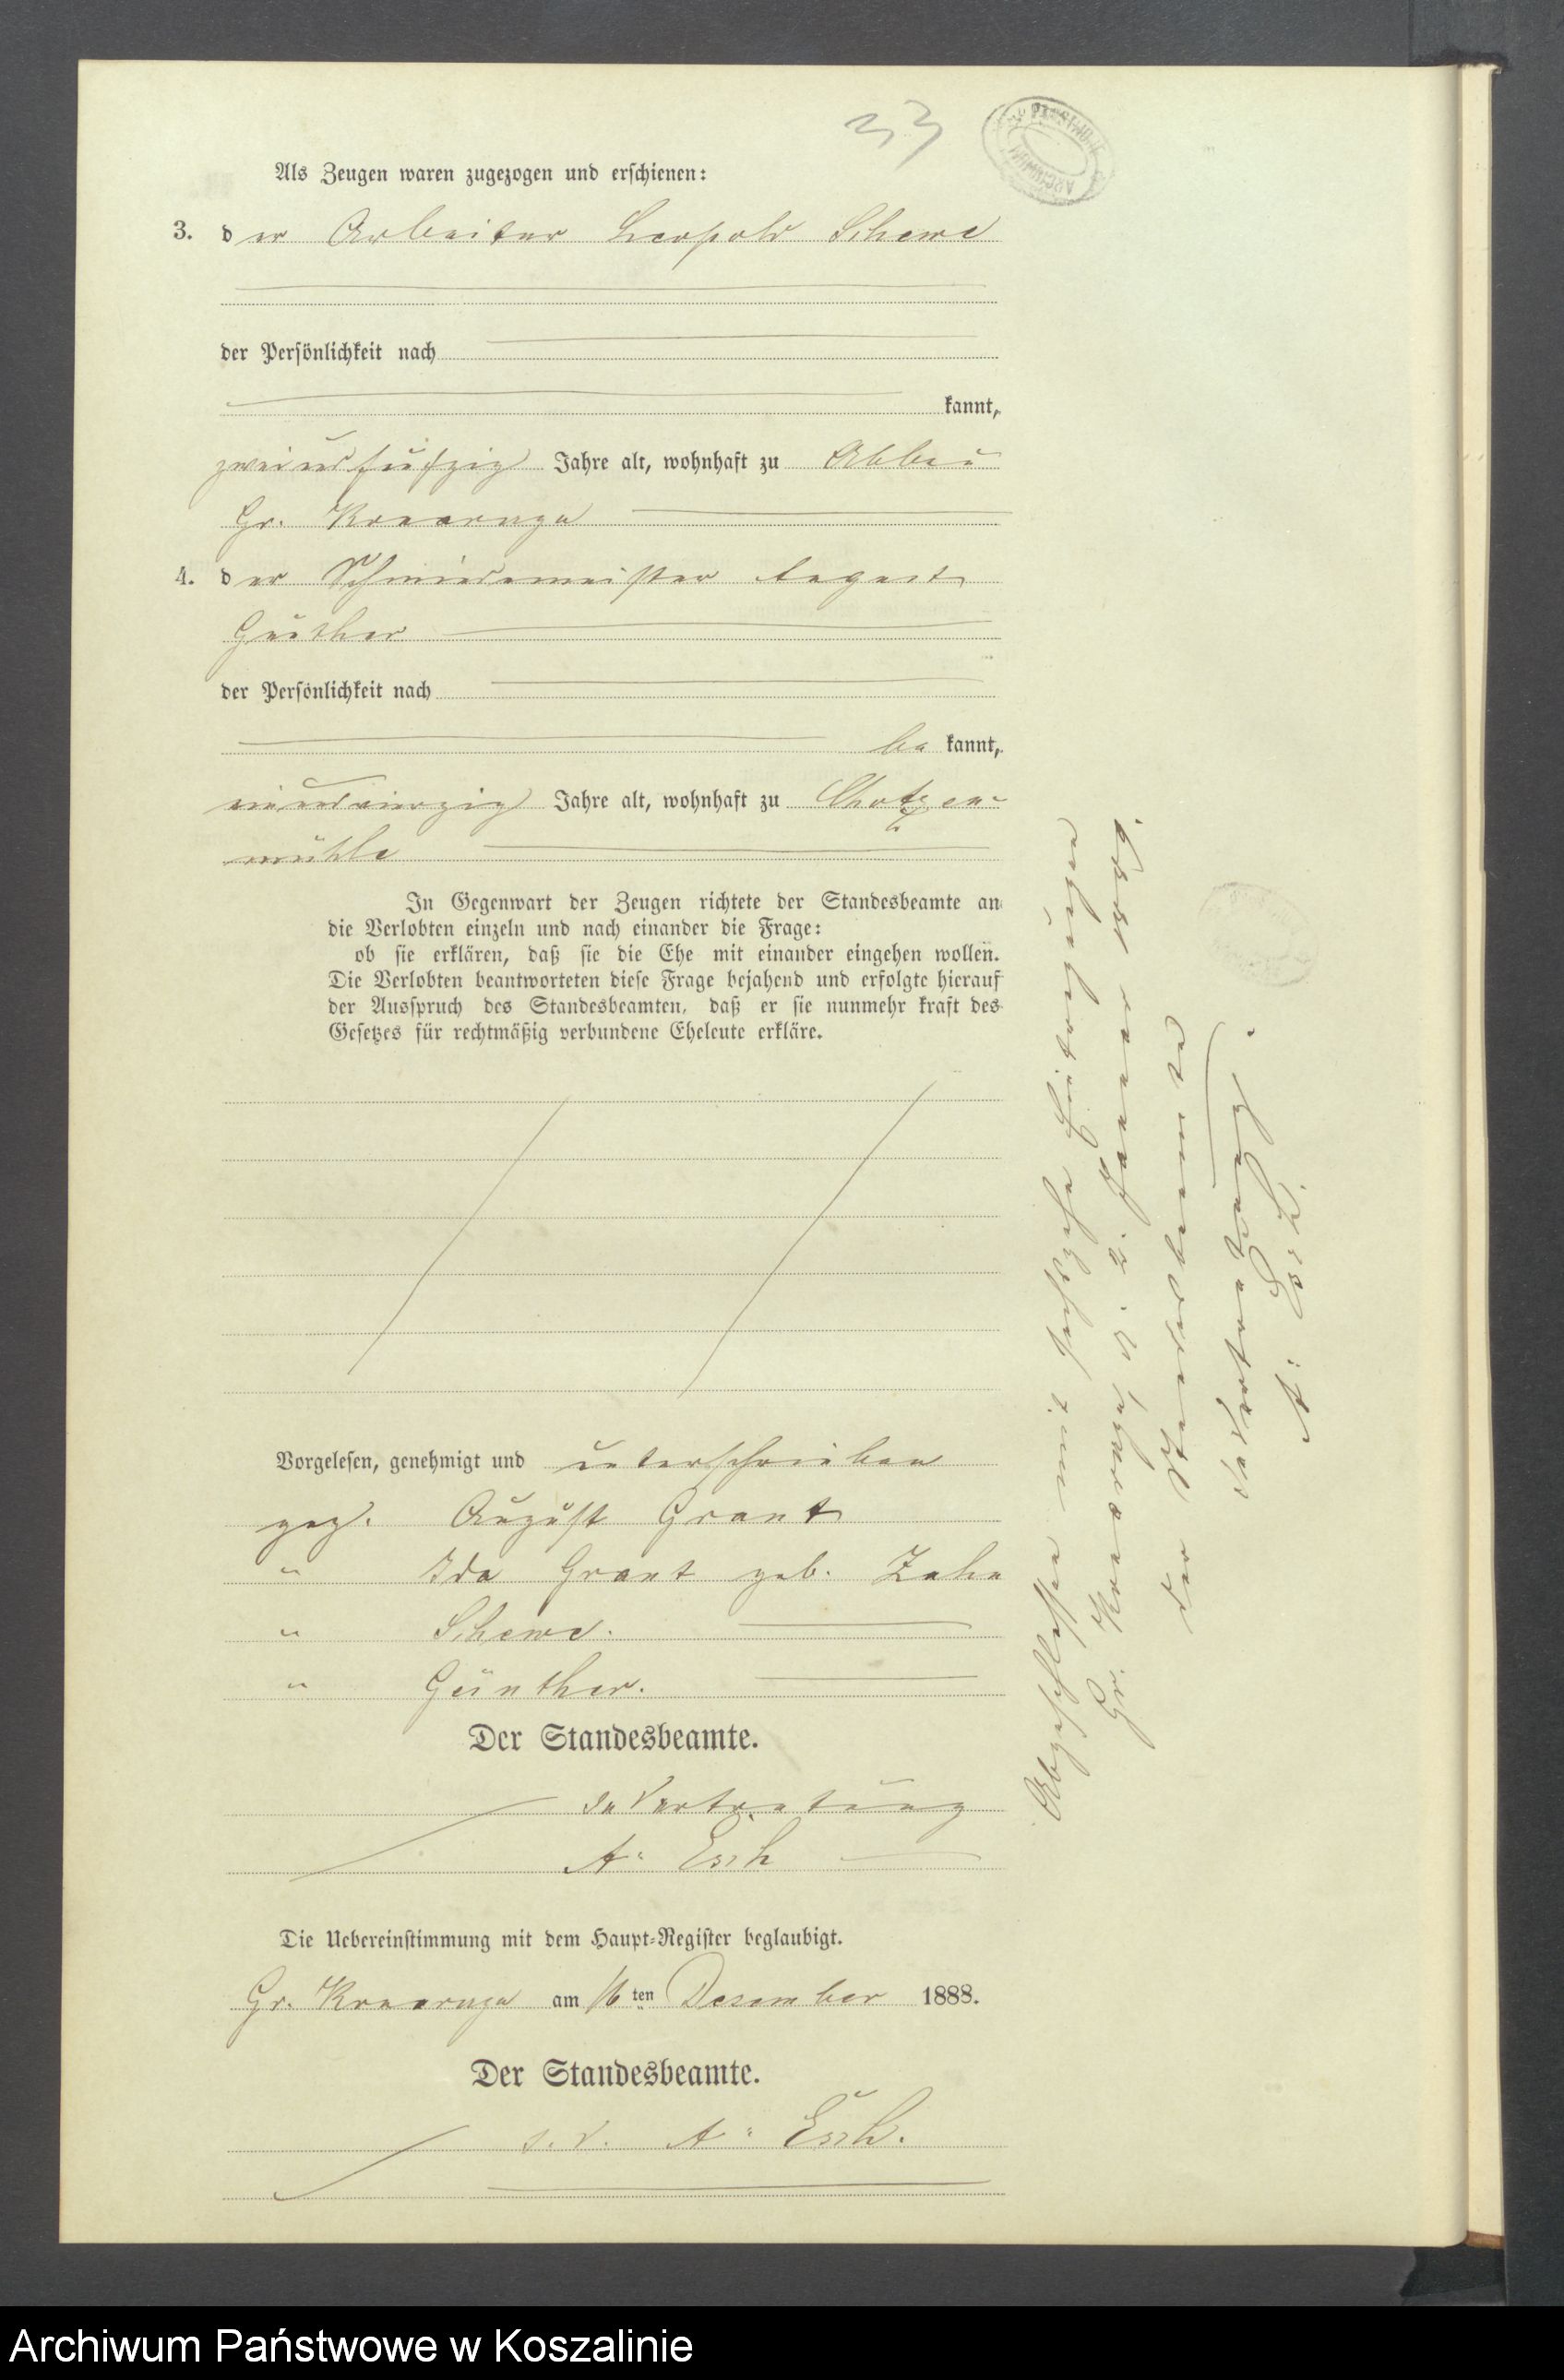 33
Als Zeugen waren zugezogen und erschienen:
3. der Arbeiter Leopold Schewe
der Persönlichkeit nach
kannt,
zweiundfünfzig Jahre alt, wohnhaft zu Abbau
Gr. Kr
4. der Schmiedemeister August
Günther
der Persönlichkeit nach
be kannt,
einundvierzig Jahre alt, wohnhaft zu Chotzen-
mühle
In Gegenwart der Zeugen richtete der Standesbeamte an
die Verlobten einzeln und nach einander die Frage:
ob sie erklären, daß sie die Ehe mit einander eingehen wollen.
Die Verlobten beantworteten diese Frage bejahend und erfolgte hierauf
der Ausspruch des Standesbeamten, daß er sie nunmehr kraft des
Gesetzes für rechtmäßig verbundene Eheleute erkläre.
Vorgelesen, genehmigt und unterschrieben
gez. August Grant
" Ida Grant geb. Zahn
" Schewe.
" Günther.
Der Standesbeamte.
In Vertretung
A: Esch
Die Uebereinstimmung mit dem Haupt-Register beglaubigt.
Gr. am 16ten Dezember 1888.
Der Standesbeamte.
I. V. A: Esch.
Abgeschlossen mit sechszehn Eintragungen
Gr. d. 2. Januar 1889.
Der Standesbeamte
In Vertretung.
A: Esch.
Archiwum Państwowe w Koszalinie